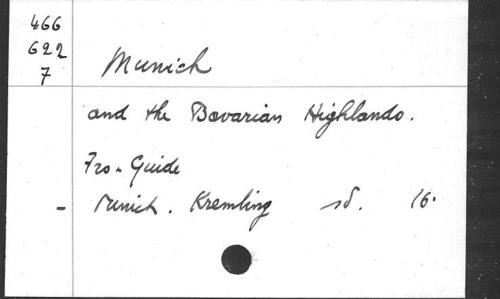 466
622
7
Munich
and the Bavarian Highlands.
Fro-Guide
- Munich. Kremling sd. 16°